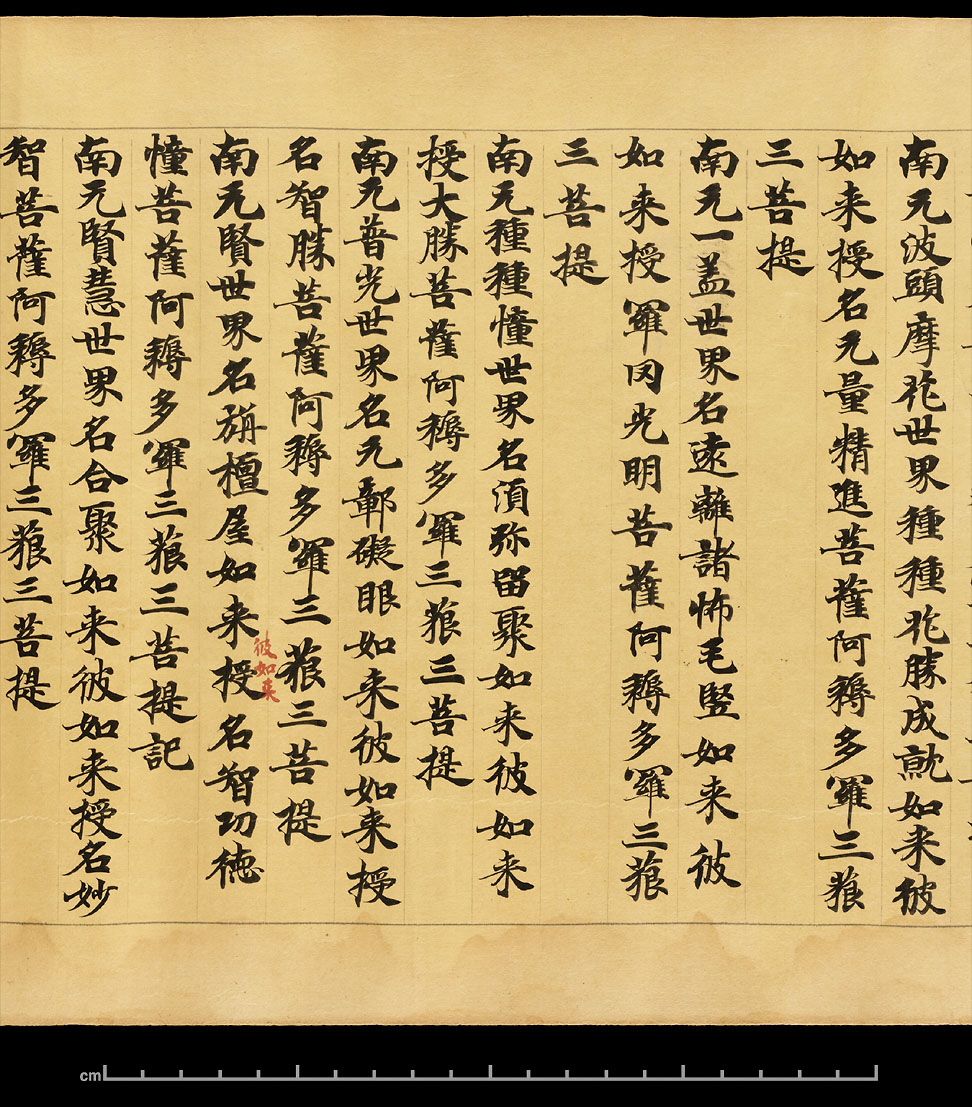 南无波頭摩花世界種種花勝成就如来彼
如来授名无量精進菩薩阿耨多羅三藐
三菩提
南无一盖世界名遠離諸怖毛竪如来彼
如来授羅冈光明菩薩阿耨多羅三藐
三菩提
南无種種憧世界名湏弥留聚如来彼如来
授大勝菩薩阿耨多羅三藐三菩提
南无普光世界名无鄣礙眼如来彼如来授
名智勝菩薩阿耨多羅三藐三菩提
南无賢世界名旃檀屋如来授名智功徳
彼如来
憧菩薩阿耨多羅三藐三菩提記
南无賢慧世界名合聚如来彼如来授名妙
智菩薩阿耨多羅三藐三菩提
cm